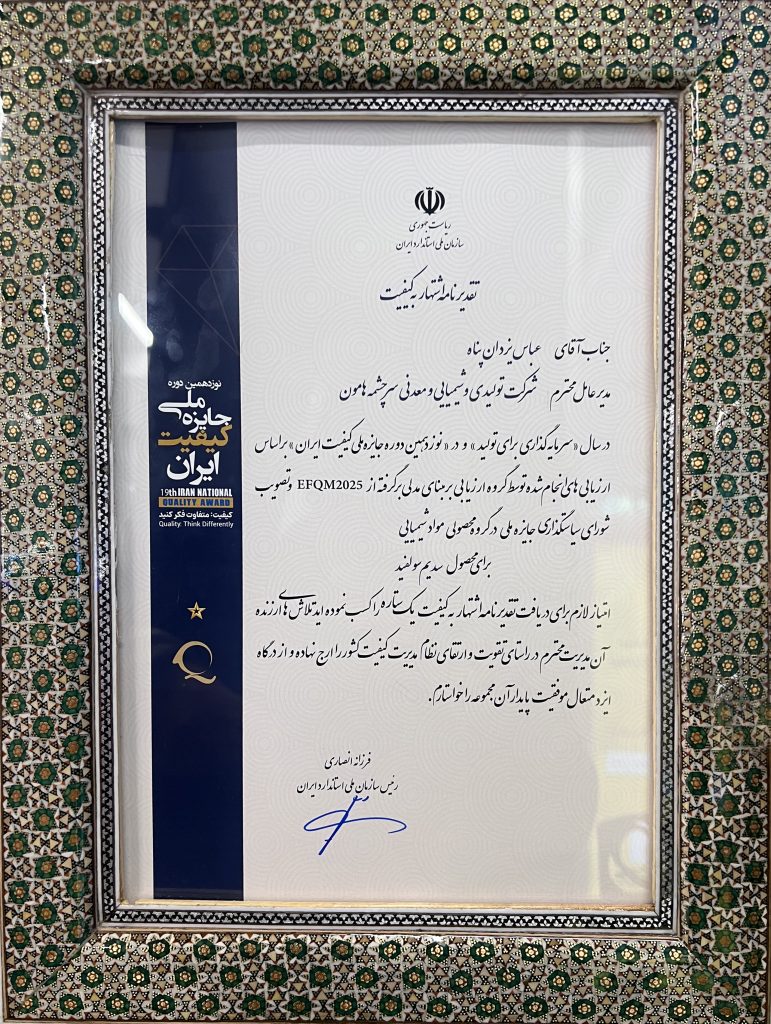 ریاست جمهوری
سازمان ملی استاندارد ایران
تقدیرنامه اشتهار به کیفیت
جناب آقای عباس یزدان پناه
مدیرعامل محترم شرکت تولیدی و شیمیایی و معدنی سرچشمه هامون
در سال «سرمایه گذاری برای تولید» و در «نوزدهمین دوره جایزه ملی کیفیت ایران» براساس
ارزیابی های انجام شده توسط گروه ارزیابی بر مبنای مدلی برگرفته از EFQM2025 و تصویب
شورای سیاستگذاری جایزه ملی در گروه محصولی مواد شیمیایی
برای محصول سدیم سولفید
امتیاز لازم برای دریافت تقدیرنامه اشتهار به کیفیت یک ستاره را کسب نموده اید تلاش های ارزنده
آن مدیریت محترم در راستای تقویت و ارتقای نظام مدیریت کیفیت کشور را ارج نهاده و از درگاه
ایزد متعال موفقیت پایدار آن مجموعه را خواستارم.
فرزانه انصاری
رئیس سازمان ملی استاندارد ایران
نوزدهمین دوره
جایزه ملی
کیفیت
ایران
19th IRAN NATIONAL
QUALITY AWARD
کیفیت: متفاوت فکر کنید
Quality: Think Differently